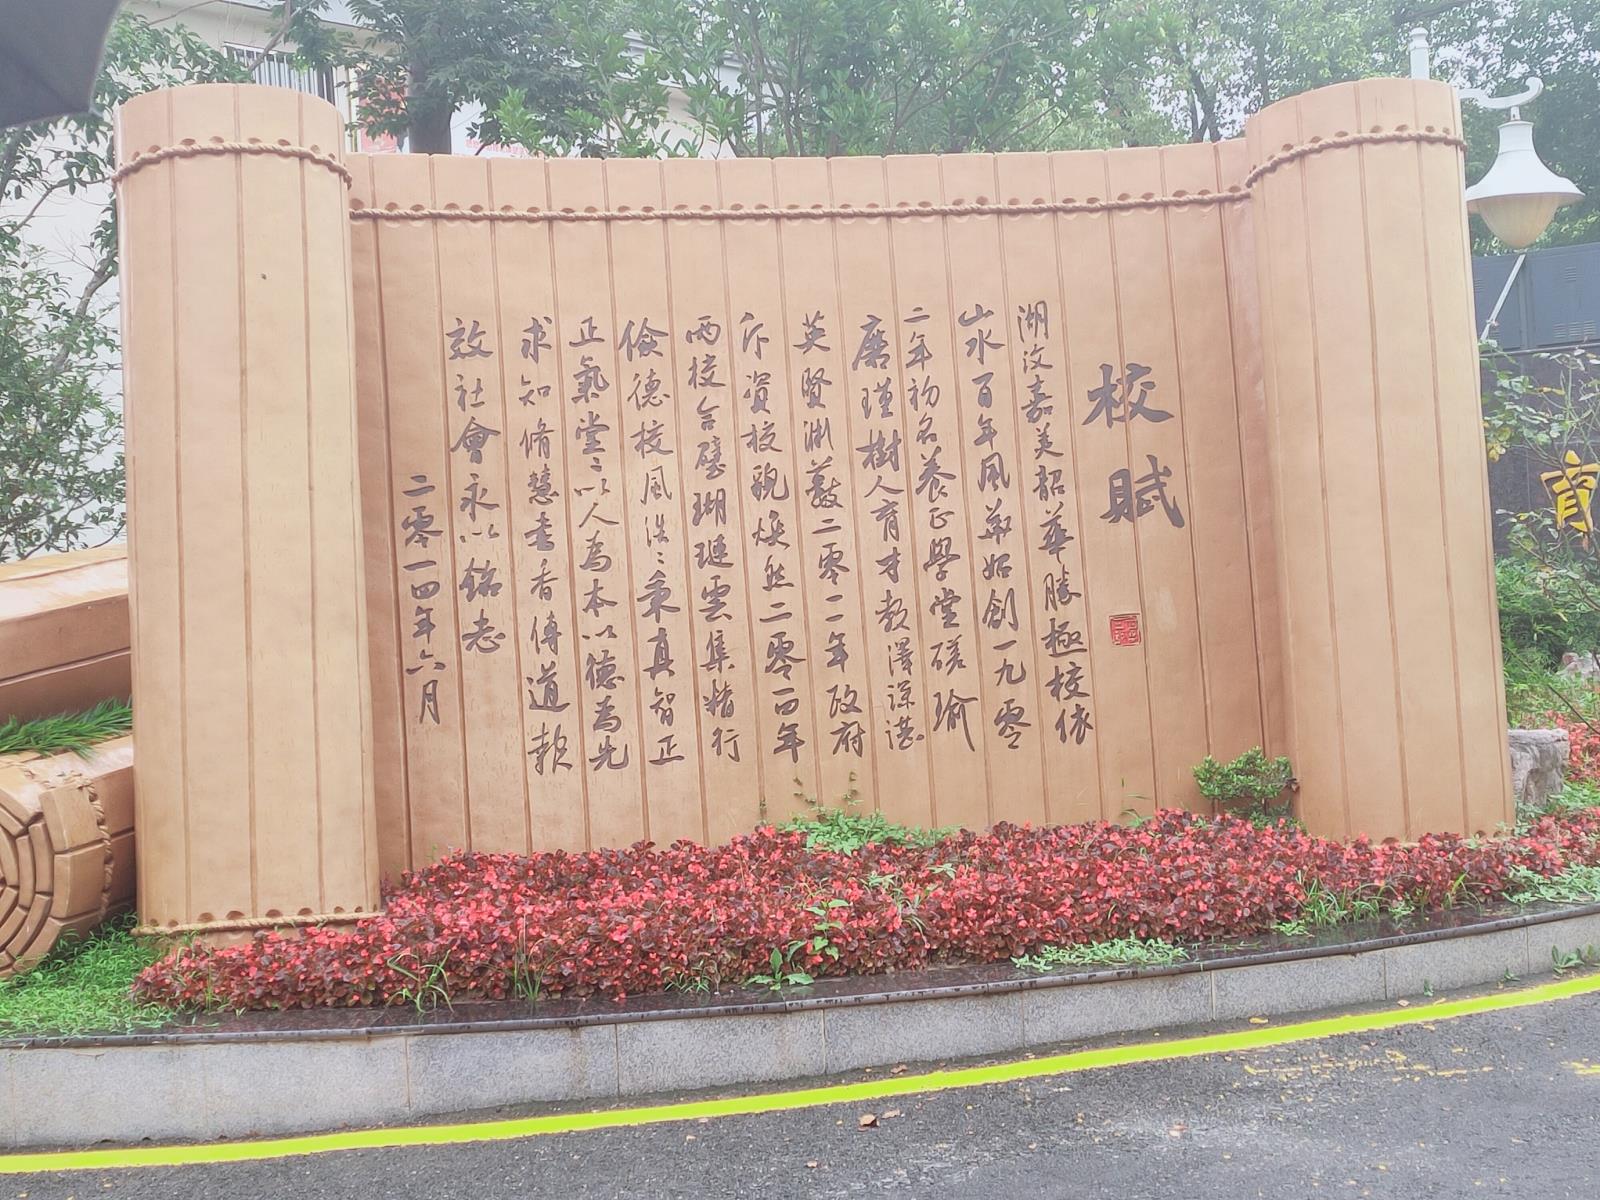 校賦
湖汶嘉美韶華勝極校依
山水百年風華始創一九零
二年初名養正學堂磋瑜
磨瑾樹人育才教澤深湛
英賢淵藪二零一二年政府
斥資校貌煥然二零一四年
兩校合璧瑚璉雲集精行
儉德校風洪〻秉真智正
正氣堂〻以人為本以德為先
求知脩慧書香傳道
效社會永以銘志
二零一四年六月
育